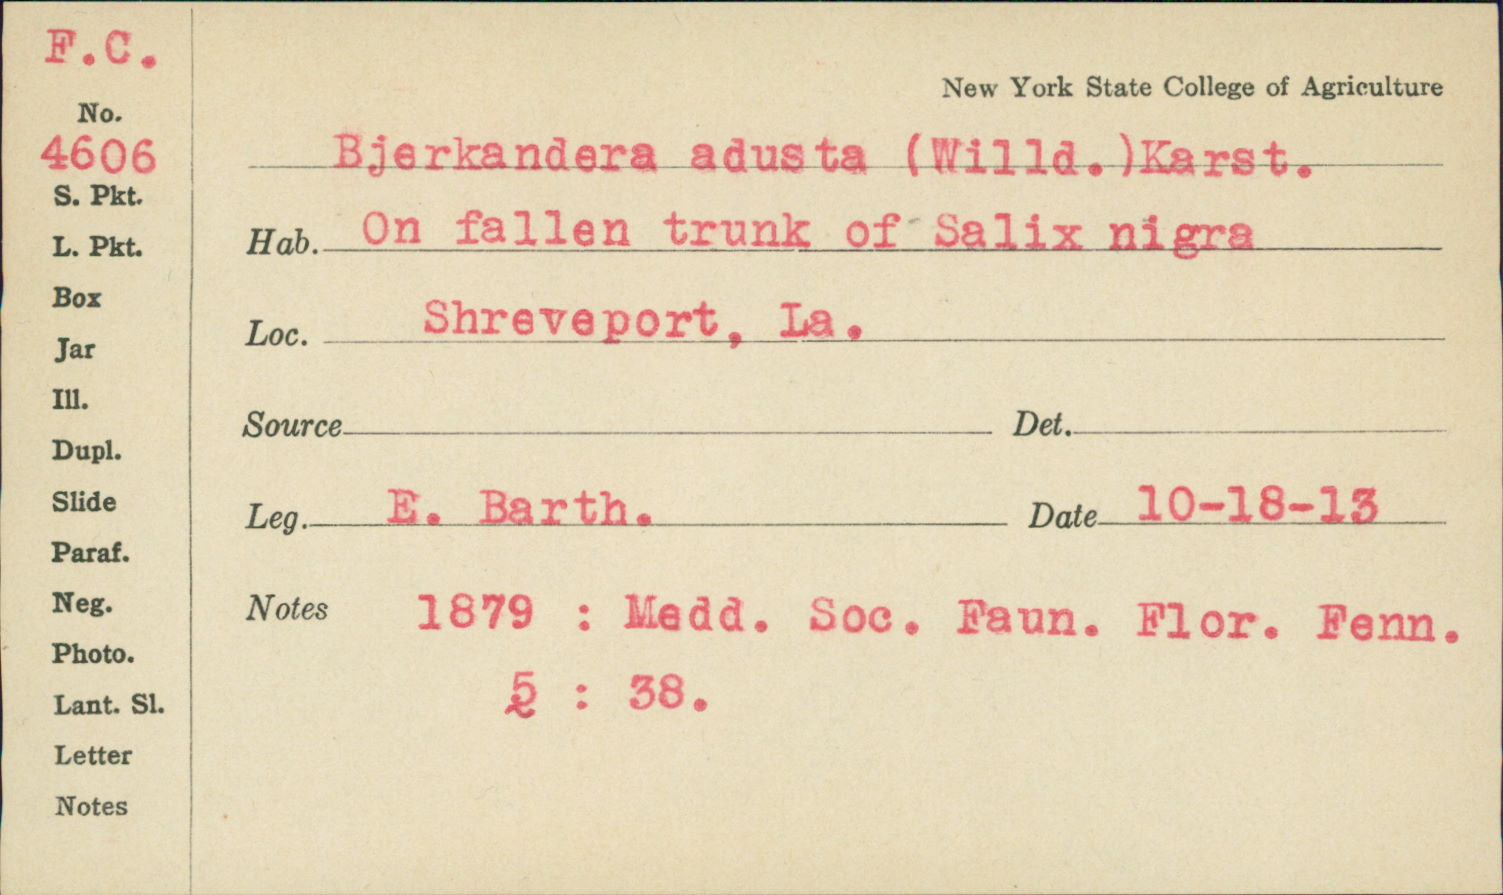 F.C.
New York State College of Agriculture
No.
4606
Bjerkandera adusta (Willd.)Karst.
S. Pkt.
Hab. On fallen trunk of Salix nigra
L. Pkt.
Box
Loc. Shreveport, La.
Jar
Ill.
Source Det.
Dupl.
Slide
Leg. E. Barth. Date 10-18-13
Paraf.
Neg.
Notes 1879 : Medd. Soc. Faun. Flor. Fenn.
Photo.
5 : 38.
Lant. Sl.
Letter
Notes